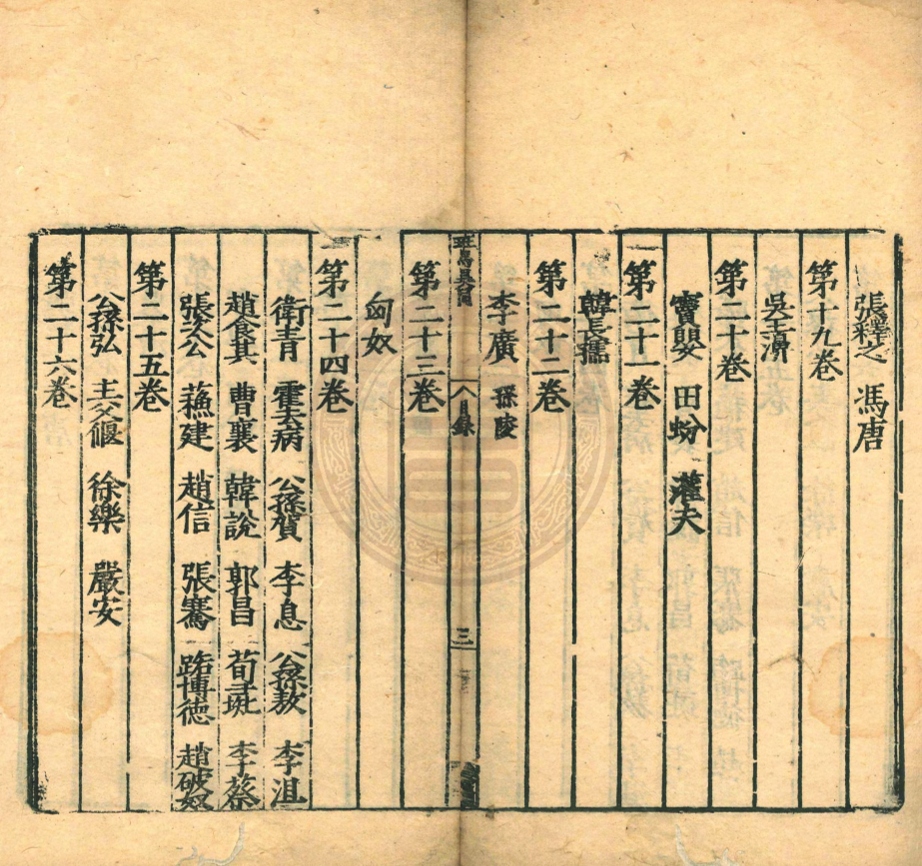 張釋之 馮唐
第十九卷
吳王濞
第二十卷
竇嬰 田蚡 灌夫
第二十一卷
韓長孺
第二十二卷
李廣 孫陵
班馬異同 目錄 三
第二十三卷
匈奴
第二十四卷
衛青 霍去病 公孫賀 李息 公孫敖 李沮
趙食其 曹襄 韓說 郭昌 荀彘 李蔡
張次公 蘓建 趙信 張騫 路博德 趙破奴
第二十五卷
公孫弘 主父偃 徐樂 嚴安
第二十六卷